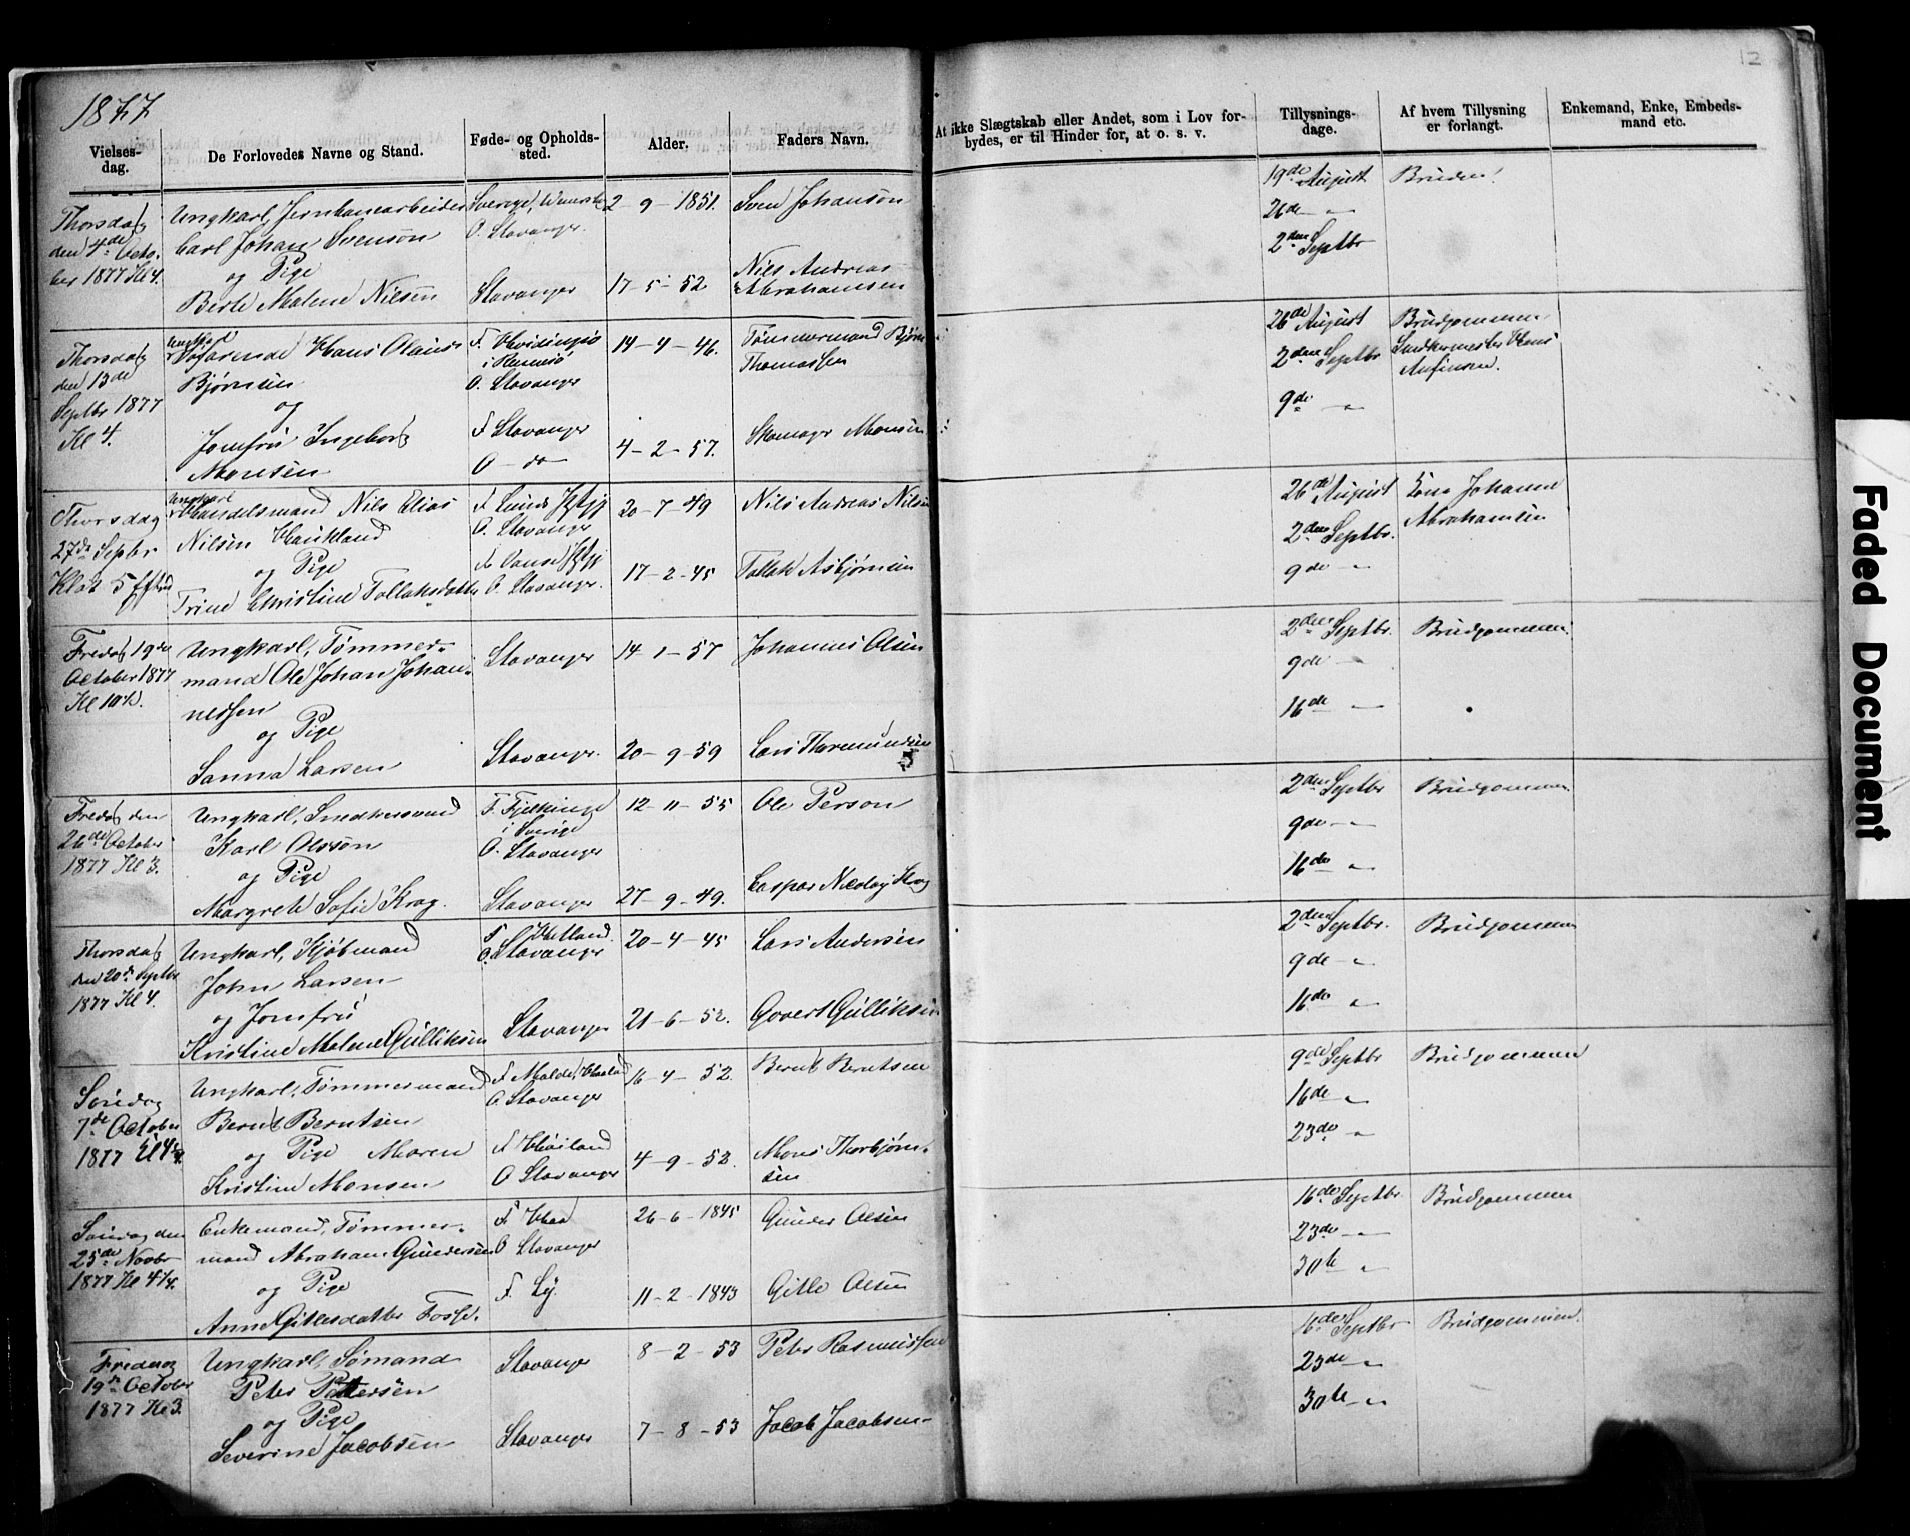 1877
12
Vielses-
dag.
De Forlovedes Navne og Stand.
Føde- og Opholds-
sted.
Alder.
Faders Navn.
At ikke Slægtskab eller Andet, som i Lov for-
bydes, er til Hinder for, at o. s. v.
Tillysnings-
dage.
Af hvem Tillysning
er forlangt.
Enkemand, Enke, Embeds-
mand etc.
Thorsdag
den 4de Octo-
ber 1877 Kl 4.
Ungkarl, Jernbanearbeider
Carl Johan Svensøn
og Pige
Berte Malene Nilsen
Sverige,
O. Stavanger.
Stavanger
2 - 9 - 1851.
17 - 5 - 52
Sven Johansøn
Nils Andreas
Abrahamsen
19de August
26de "
2den Septbr
Bruden.
Thorsdag
den 13de
Septbr 1877
Kl 4.
Ungkarl
Søfarende Hans Olaus
Bjørnsen
og
Jomfru Ingeborg
Monsen
F. Hvidingsø
i Rennesø
O. Stavanger
F Stavanger
O - do -
14 - 4 - 46.
4 - 2 - 57.
Tømmermand Bjørn
Thomassen
Skomager Monsen
26de August
2den Septbr
9de "
Brudgommen
Snedkermester Hans
Anfinsen.
Thorsdag
27de Septbr
Klok 5 Efterm
Ungkarl
Handelsmand Nils Elias
Nilsen Haukland
og Pige
Trine Christine Tollaksdatter
F Lunds Pgjg
O. Stavanger
O. Stavanger.
20 - 7 - 49
17 - 2 - 45
Nils Andreas Nilsen
Tollak Asbjørnsen
26de August
2den Septbr.
9de "
Lars Johann
Abrahamsen
Fredag 19de
October 1877
Kl 10½.
Ungkarl, Tømmer-
mand Ole Johan Johan-
nessen
og Pige
Sanna Larsen
Stavanger
Stavanger.
14 - 1 - 57
20 - 9 - 59
Johannes Olsen
Lars Thormundsen
2den Septbr.
9de
16de "
Brudgommen.
Fredag den
26de October
1877 Kl 3.
Ungkarl, Snedkersvend
Karl Olssøn
og Pige
Margrete Sofie Krag.
F. Fjelkinge
i Sverige
O. Stavanger
Stavanger
12 - 11 - 55
27 - 9 - 49.
Ole Person
Caspar Nicolay Krag
2den Septbr
9de "
16de "
Brudgommen
Thorsdag
den 20de Septbr
1877 Kl 4.
Ungkarl, Kjøbmand
John Larsen
og Jomfru
Kristine Malene Gulliksen
F. Hetland
O. Stavanger
Stavanger
20 - 4 - 45
21 - 6 - 52.
Lars Andersen
Govert Gulliksen
2den Septbr.
9de "
16de "
Brudgommen
Søndag
7de October
1877 Kl 4¼.
Ungkarl, Tømmermand
Bernt Berntsen
og Pige Maren
Kristine Monsen
F. Malde, Haaland
O. Stavanger
F. Høiland
O Stavanger
16 - 4 - 52.
4 - 9 - 52.
Bernt Berntsen
Mons Thorbjørn-
sen
9de Septbr
16de "
23de "
Brudgommen
Søndag den
25de Novbr
1877 Kl 4¼.
Enkemand, Tømmer-
mand Abraham Gundersen
og Pige
Anne Gitlesdatter Fosse.
F. Haa
O Stavanger
F. Ly.
26 - 6 - 1845
11 - 2 - 1843
Gunder Olsen
Gitle Olsen
16de Septbr.
23de "
30te "
Brudgommen
Fredag
19de October
1877 Kl 3.
Ungkarl, Sømand
Peter Pettersen
og Pige
Severine Jacobsen
Stavanger
Stavanger
8 - 2 - 53
7 - 8 - 53
Peter Rasmussen
Jacob Jacobsen
16de Septbr
23de "
30te "
Brudgommen.
Faded Document